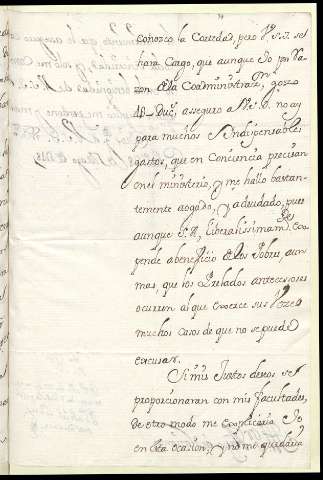 conozco la Cortedad, pero V. S. S. se
hara Cargo, que aunque Yo por Ra-
zon de la Coadministraz.n gozo
de Duc.s, asseguro a V. S. no ay
para muchos Indispensables
gastos, que en Conciencia precisan
en el ministerio, y me hallo bastan-
temente aogado, y adeudado, pues
aunque S. A. liberalissimam.te ex-
pende a beneficio de los Pobres, aun
mas, que los Prelados antecessores
ocurren al que exerce sus Vozes
muchos Casos de que no se puede
escusar.
Si mis Justos deseos se
proporcionaran con mis facultades,
de otro modo me explicaria Yo
en esta ocasion, y no me quedaria